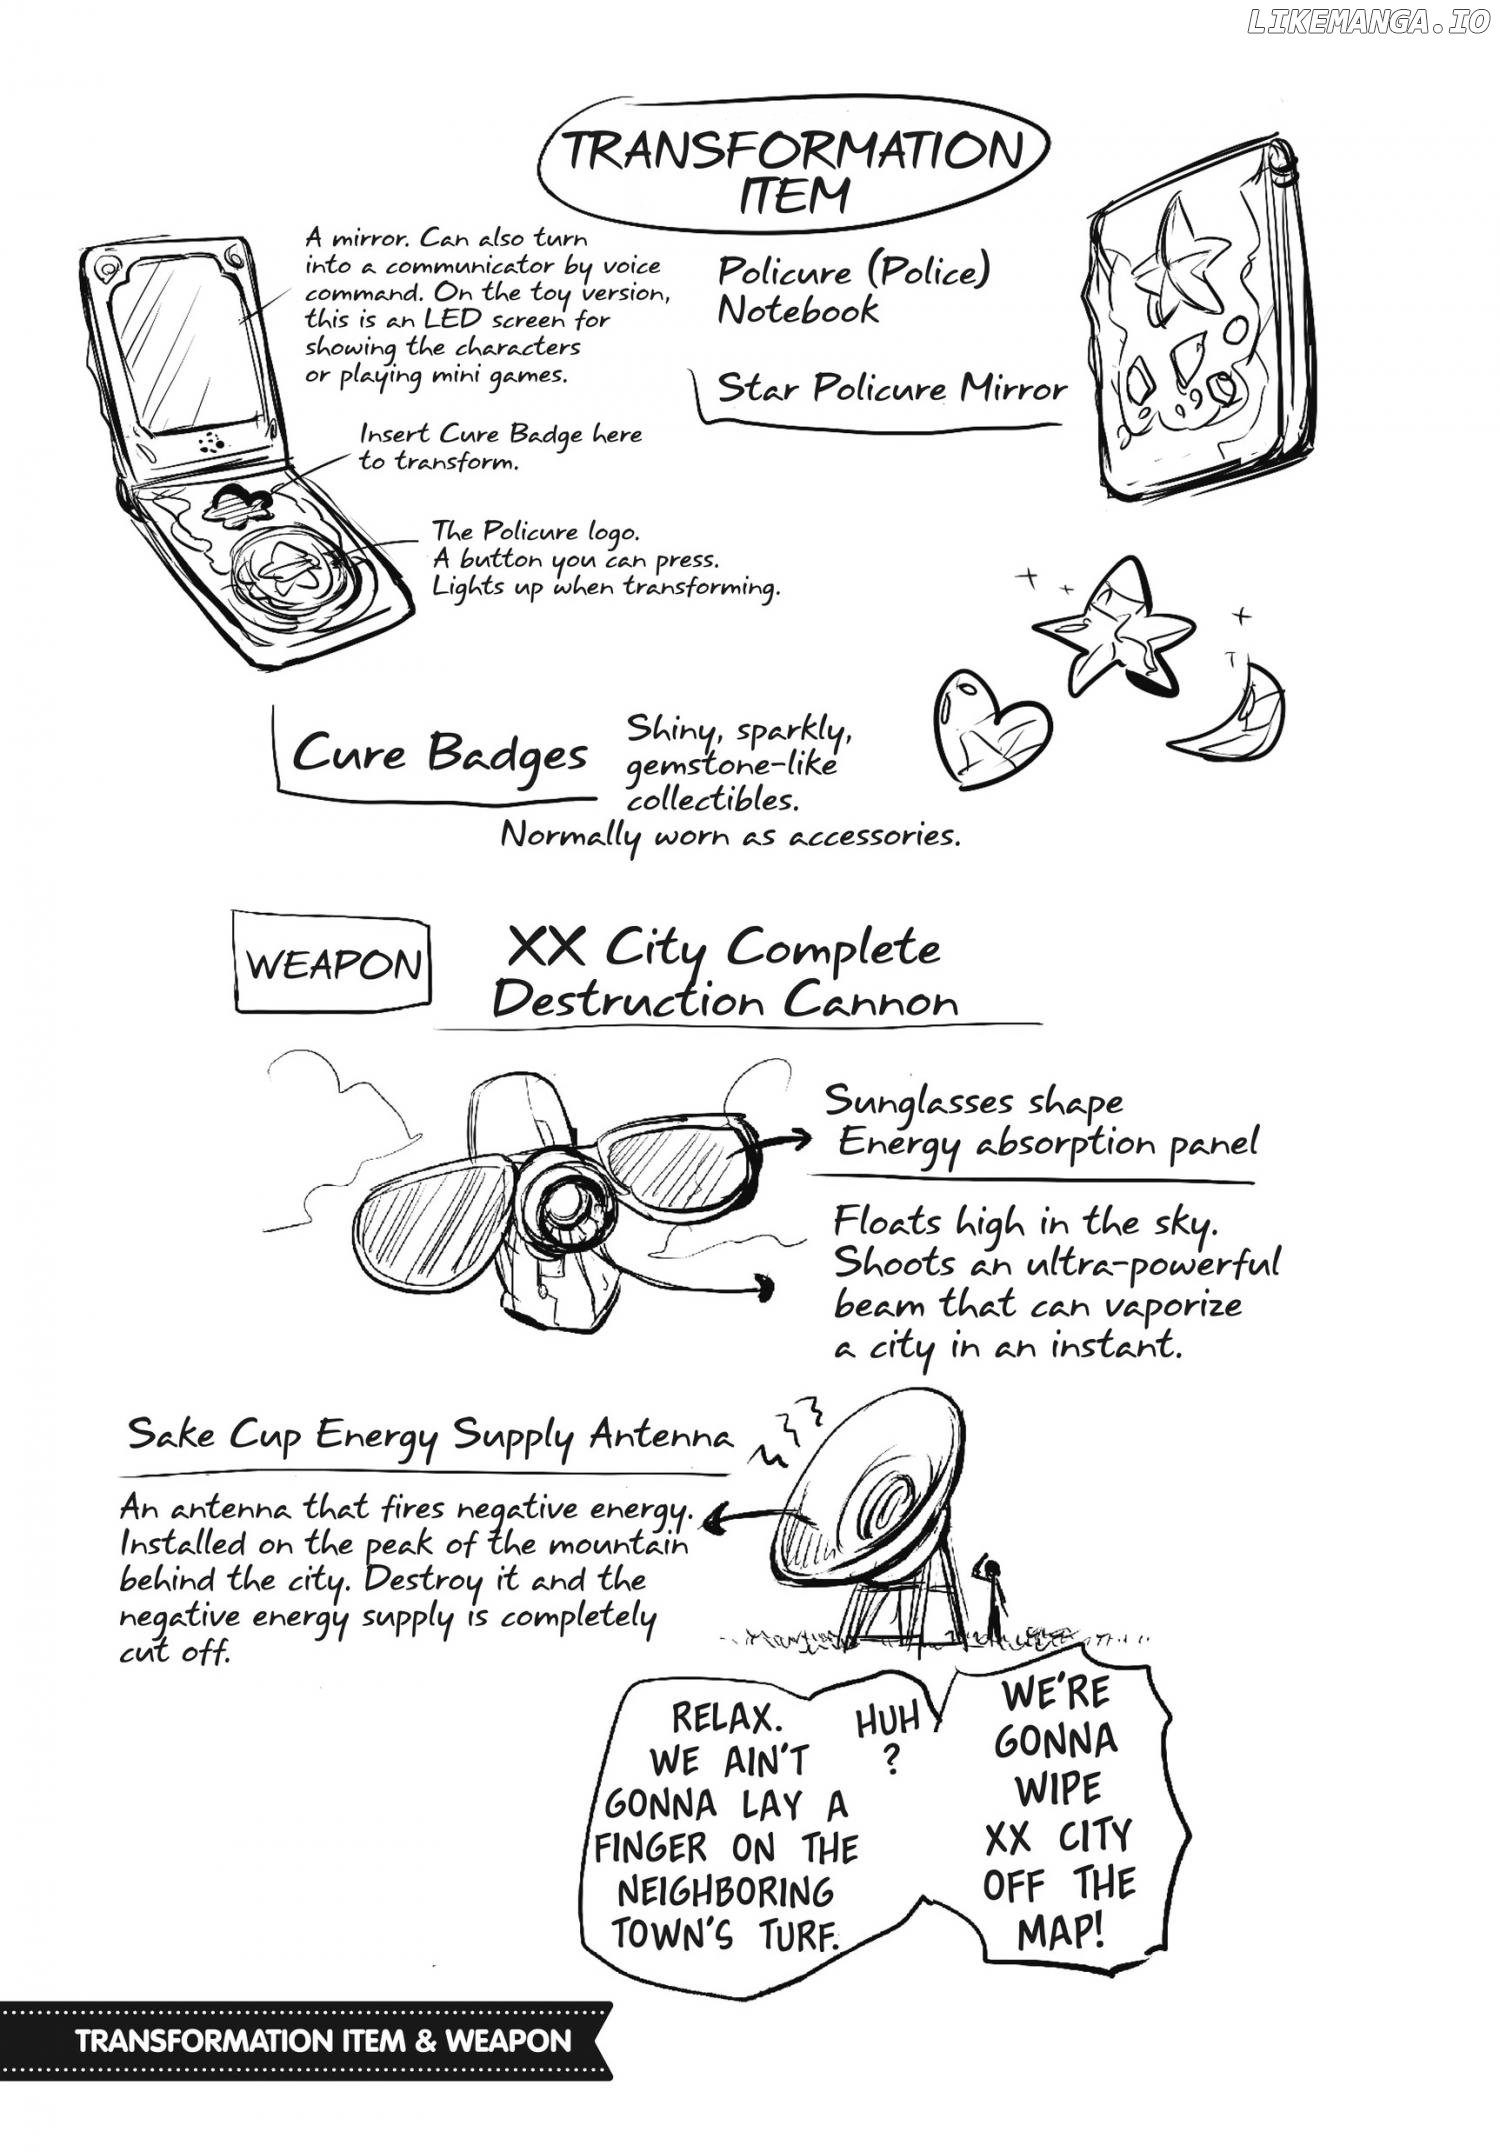 LIKEMANGA.IO
TRANSFORMATION
ITEM
A mirror. Can also turn
into a communicator by voice
command. On the toy version,
this is an LED screen for
showing the characters
or playing mini games.
Policure (Police)
Notebook
Star Policure Mirror
Insert Cure Badge here
to transform.
The Policure logo.
A button you can press.
Lights up when transforming.
Cure Badges
Shiny, sparkly,
gemstone-like
collectibles.
Normally worn as accessories.
WEAPON
XX City Complete
Destruction Cannon
Sunglasses shape
Energy absorption panel
Floats high in the sky.
Shoots an ultra-powerful
beam that can vaporize
a city in an instant.
Sake Cup Energy Supply Antenna
An antenna that fires negative energy.
Installed on the peak of the mountain
behind the city. Destroy it and the
negative energy supply is completely
cut off.
WE'RE
GONNA
WIPE
XX CITY
OFF THE
MAP!
HUH
?
RELAX.
WE AIN'T
GONNA LAY A
FINGER ON THE
NEIGHBORING
TOWN'S TURF.
TRANSFORMATION ITEM & WEAPON